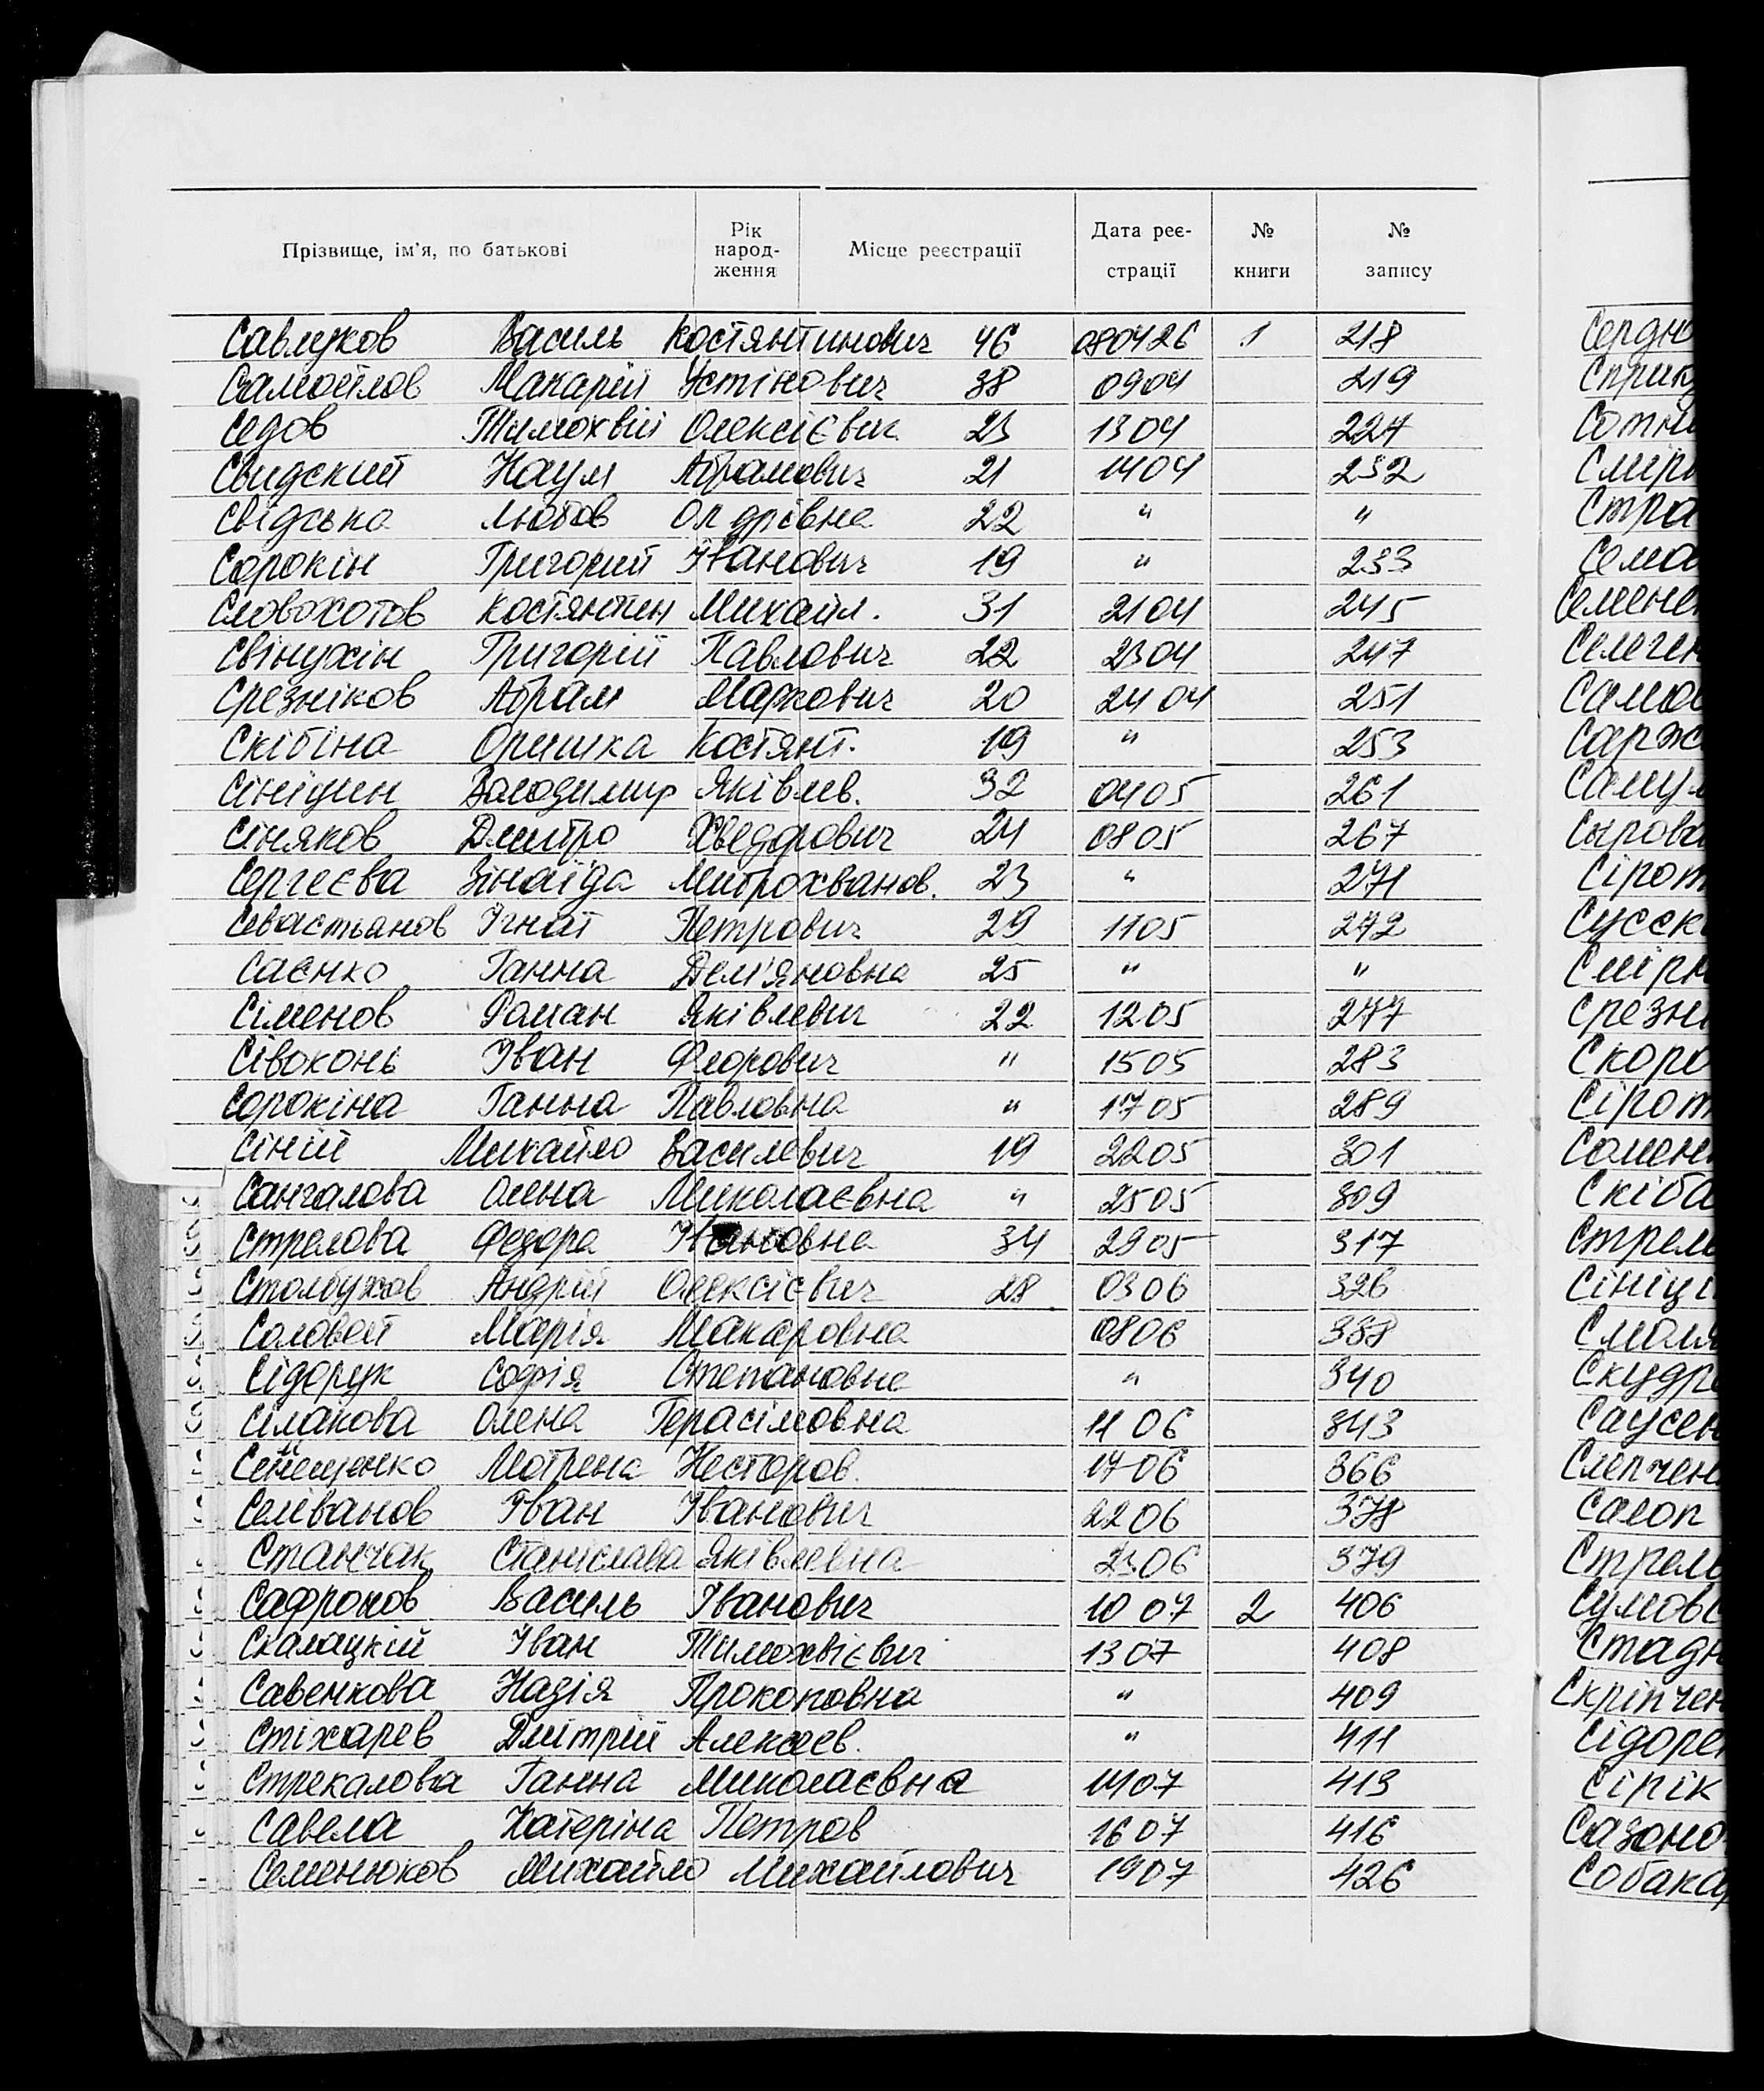 Прізвище, ім'я, по батькові Рік народ-ження Місце реєстрації Дата реє-страції № книги № запису
Савлуков Василь Костянтинович 46 080426 1 218
Самойлов Макарій Устінович 38 0904 219
Седов Тимохвій Олексієвич 23 1304 227
Свидский Наум Абрамович 21 1404 232
Свідська Любов 22 " "
Сорокін Григорий Іванович 19 " 233
Словохотов Костянтин Михайл. 31 2104 245
Свінухін Григорій Павлович 22 2304 247
Срезніков Абрам Маркович 20 2404 251
Скібіна Оришка Костянт. 19 " 253
Сініцин Володимир Яківлев. 32 0405 261
Сіняков Дмитро Хведорович 24 0805 267
Сергеєва Зінаїда Митрохванов. 23 " 271
Севастьанов Ігнат Петрович 29 1105 272
Саєнко Ганна Дем'яновна 25 " "
Сіменов Роман Яківлевич 22 1205 277
Сівоконь Іван Федрович " 1505 283
Сорокіна Ганна Павловна " 1705 289
Сіній Михайло Василевич 19 2205 301
Сангалова Олена Миколаєвна " 2505 309
Стрелова Федора Івановна 34 2905 317
Столбухов Андрій Олексієвич 28 0306 326
Соловей Марія Макаровна 0806 338
Сідорук Софія Степановна " 340
Сілакова Олена Герасімовна 1106 343
Мотрена Несторов. 1706 366
Селіванов Іван Іванович 2206 378
Станчак Станіслава Яківлевна 2306 379
Сафронов Василь Іванович 1007 2 406
Скалацкій Іван Тимохвієвич 1307 408
Савенкова Надія Прокоповна " 409
Стіхарев Дмітрій Алексеев. " 411
Стрекалова Ганна Миколаєвна 1407 413
Савела Катеріна Петров 1607 416
Семенюков Михайло Михайлович 1907 426